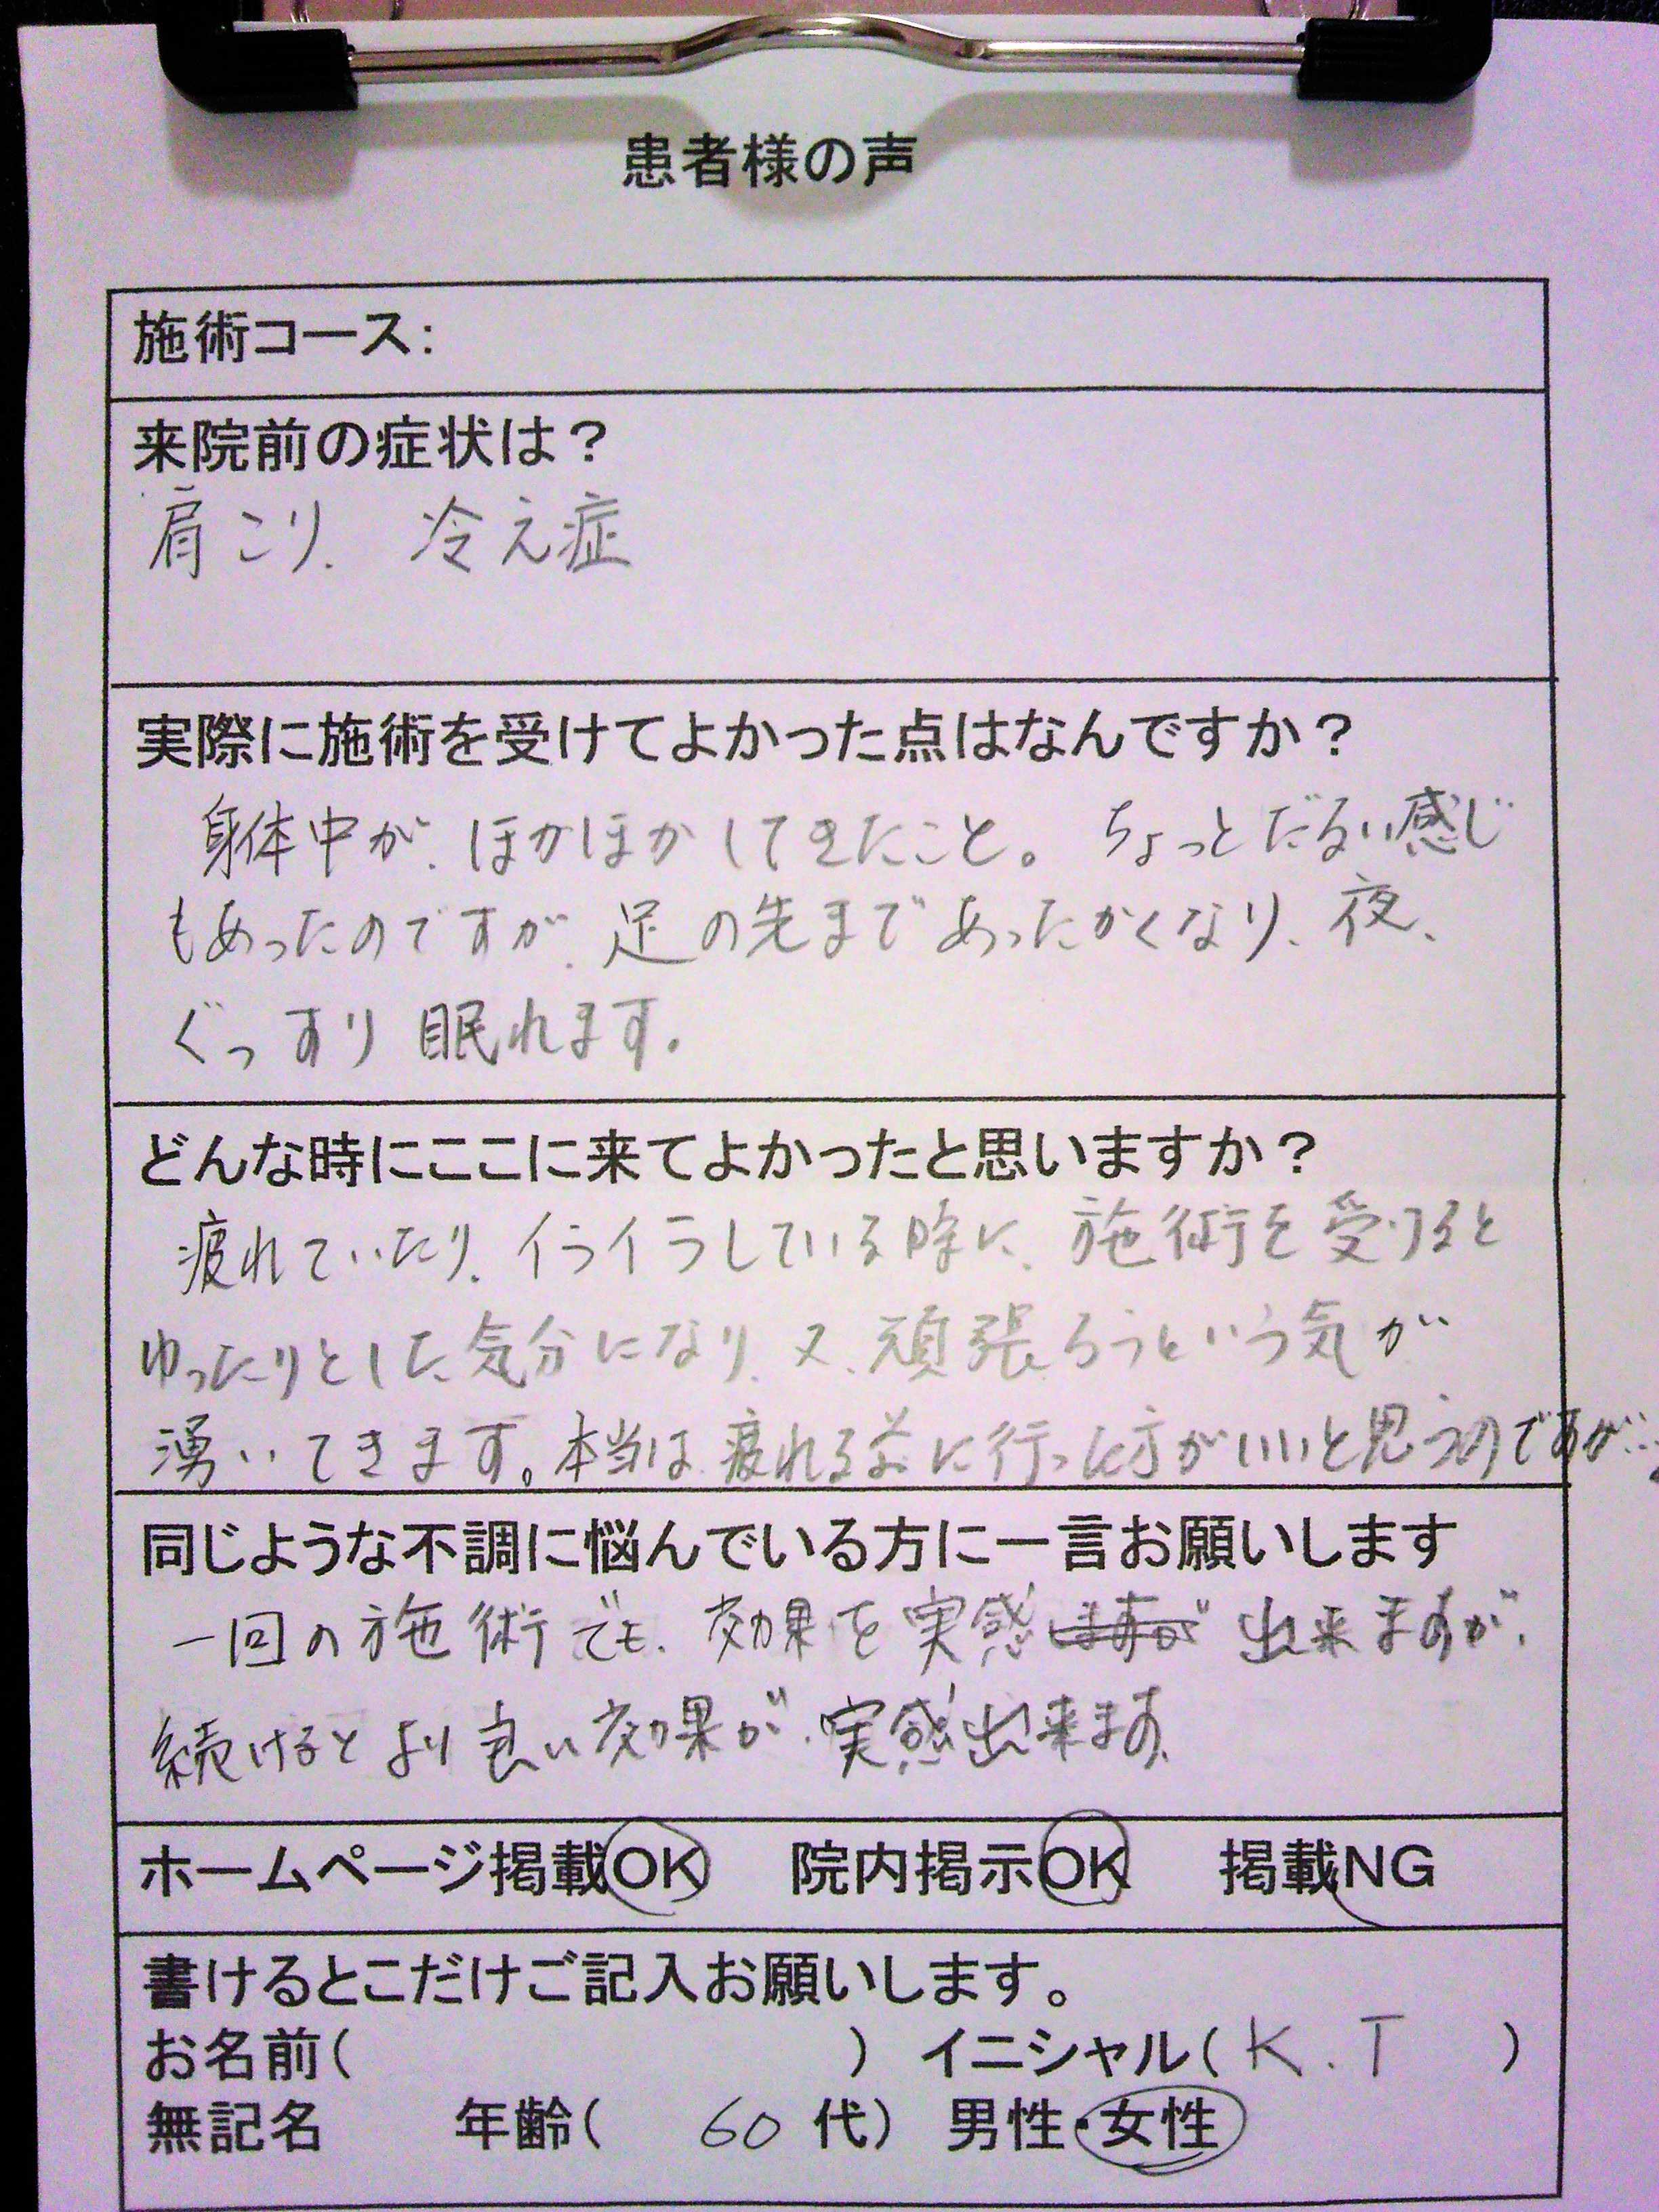 患者様の声
施術コース:
来院前の症状は?
肩こり、冷え症
実際に施術を受けてよかった点はなんですか?
身体中が、ほかほかしてきたこと。ちょっとだるい感じ
もあったのですが、足の先まであったかくなり、夜、
ぐっすり眠れます。
どんな時にここに来てよかったと思いますか?
疲れていたり、イライラしている時に、施術を受けると
ゆったりとした気分になり、又、頑張ろうという気が
湧いてきます。本当は疲れる前に行った方がいいと思うのですが…
同じような不調に悩んでいる方に一言お願いします
一回の施術でも、効果を実感しますが出来ますが、
続けるとより良い効果が、実感出来ます。
ホームページ掲載OK 院内掲示OK 掲載NG
書けるとこだけご記入お願いします。
お名前( ) イニシャル(K.T)
無記名 年齢( 60代) 男性・女性